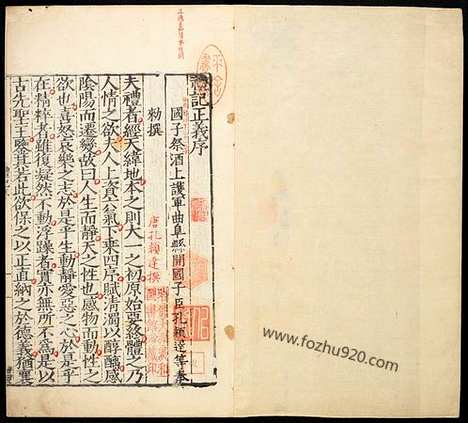 禮記正義序
國子祭酒上護軍曲阜縣開國子臣孔穎達等奉
勑撰
唐孔穎達撰
夫禮者經天緯地本之則大一之初原始要終體之乃
人情之欲夫人上資六氣下乘四序賦清濁以醇醨感
陰陽而遷變故曰人生而靜天之性也感物而動性之
欲也喜怒哀樂之志於是乎生動靜愛惡之心於是乎
在精粹者雖復凝然不動浮躁者實亦無所不為是以
古先聖王鑒其若此欲保之以正直納之於德義猶襄
www.fozhu920.com